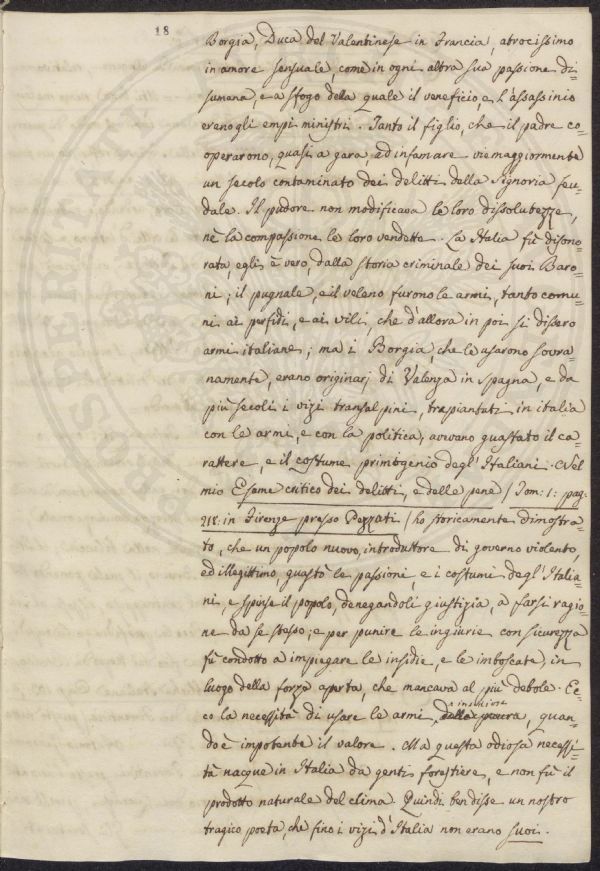 18
Borgia, Duca del Valentinese in Francia, atrocissimo
in amore sensuale, come in ogni altra sua passione di=
sumana, e a sfogo della quale il veneficio, e l'assassinio
erano gli empi ministri. Tanto il figlio, che il padre co=
operarono, quasi a gara, ad infamare viemaggiormente
un secolo contaminato dei delitti della Signoria feu=
dale. Il pudore non modificava le loro dissolutezze,
nè la compassione le loro vendette. La Italia fù disono=
rata, egli è vero, dalla storia criminale dei suoi Baro=
ni; il pugnale, e il veleno furono le armi, tanto comu=
ni ai perfidi, e ai vili, che d'allora in poi si dissero
armi italiane; ma i Borgia, che le usarono sovra=
namente, erano originarj di Valenza in Spagna, e da
più secoli i vizi transalpini, trapiantati in italia
con le armi, e con la politica, avevano guastato il ca=
rattere, e il costume primogenio degl'Italiani. Nel
mio Esame critico dei delitti, e delle pene (Tom: 1: pag:
218: in Firenze presso Pezzati) ho storicamente dimostra=
to, che un popolo nuovo, introduttore di governo violento,
ed illegittimo, guastò le passioni, e i costumi degl'Italia=
ni, e spinse il popolo, denegandoli giustizia, a farsi ragio=
ne da se stesso; e per punire le ingiurie con sicurezza
fù condotto a impiegare le insidie, e le imboscate, in
luogo della forza aperta, che mancava al più debole. Ec=
co la necessità di usare le armi della paura, quan=
do è impotente il valore. Ma questa odiosa necessi=
tà nacque in Italia da genti forestiere, e non fù il
prodotto naturale del clima. Quindi ben disse un nostro
tragico poeta, che fino i vizi d'Italia non erano suoi.